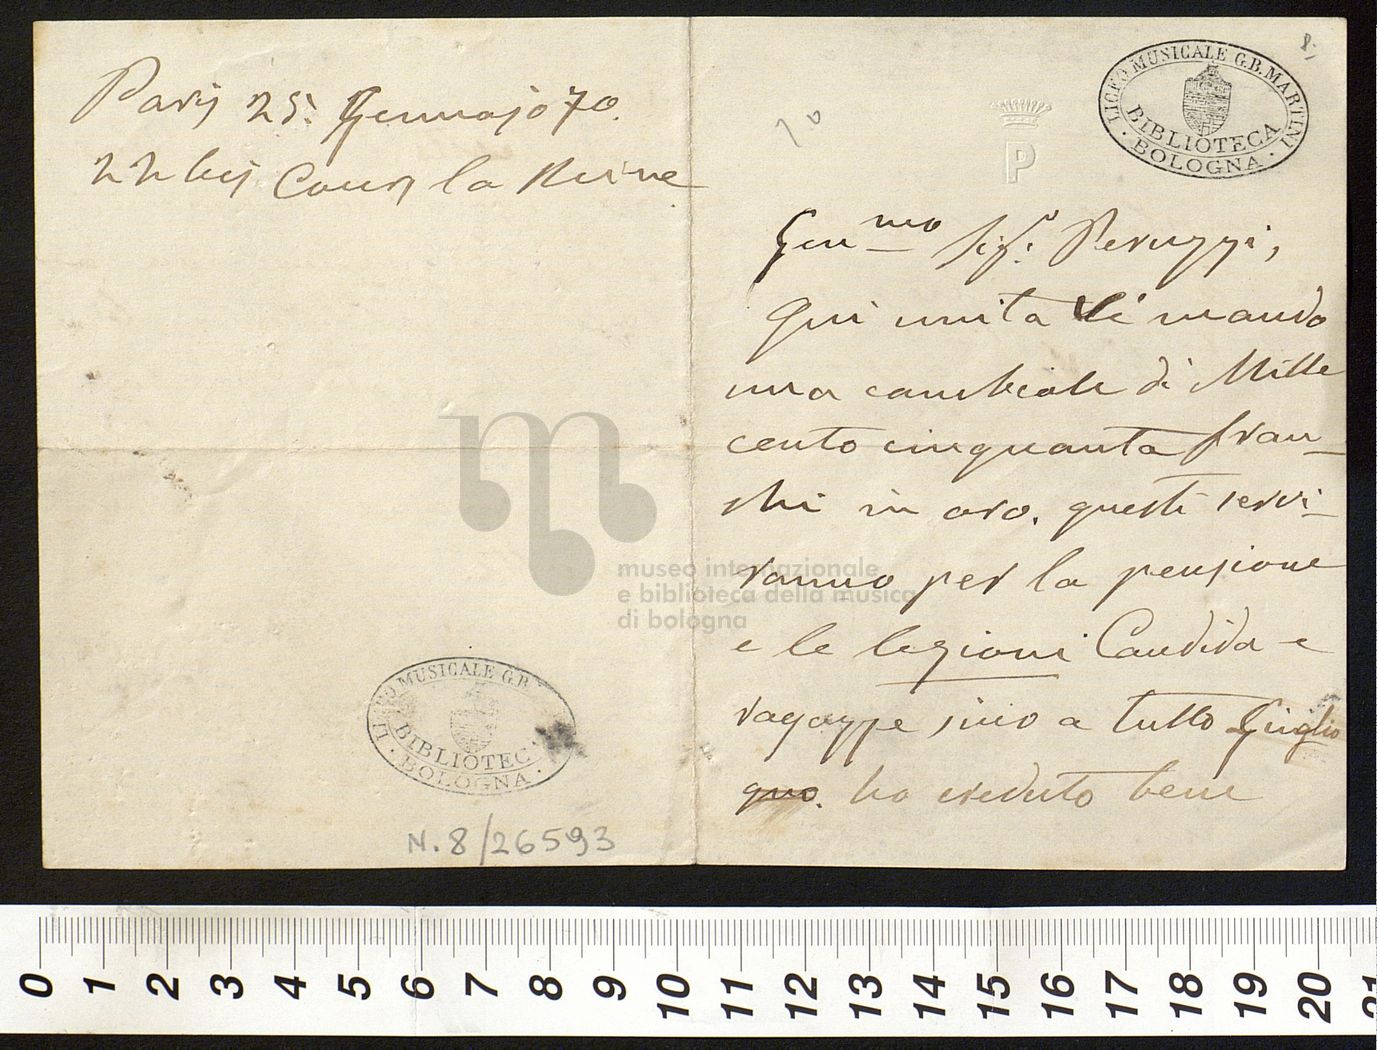 Paris 25. Gennajo 70.
22 bis Cours la Reine
N. 8/26593
LICEO MUSICALE G.B.
BIBLIOTEC
· BOLOGNA ·
8;
LICEO MUSICALE G.B. MARTINI
BIBLIOTECA
· BOLOGNA ·
P
Gen.mo Sigr. Peruzzi,
Qui unita Le mando
una cambiale di Mille
cento cinquanta fran-
chi in oro. questi servi-
ranno per la pensione
e le lezioni Candida e
ragazze sino a tutto Giuglio
quo. ho creduto bene
museo internazionale
e biblioteca della musica
di bologna
0 1 2 3 4 5 6 7 8 9 10 11 12 13 14 15 16 17 18 19 20 21